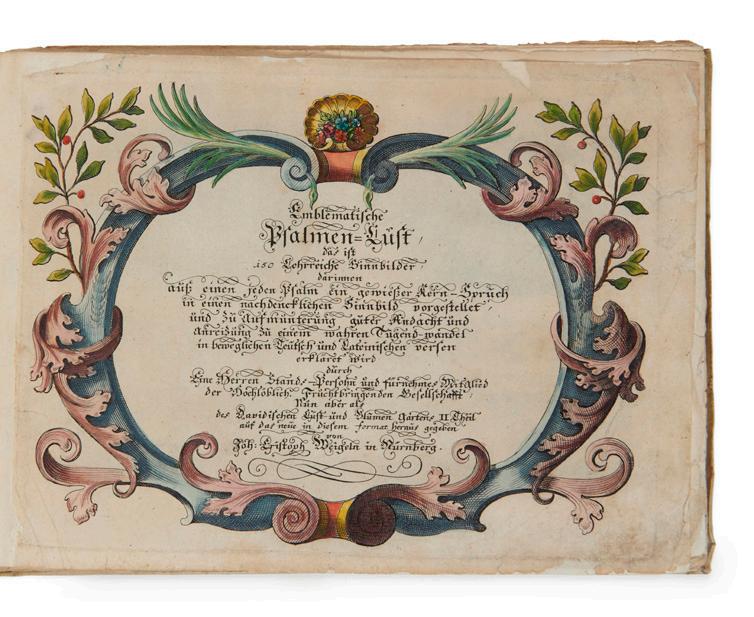 Emblematische
Psalmen-Lust,
das ist
150 Lehrreiche Sinnbilder,
darinnen
auß einen jeden Psalm ein gewißer Kern-Spruch
in einen nachdencklichen Sinnbild vorgestellet,
und zu Aufmunterung guter Andacht und
Anreizung zu einem wahren Tugend-wandel
in beweglichen Teutsch und Lateinischen versen
erkläret wird
durch
Eine Herren Stands-Persohn und fürnehmes Mitglied
der Hochlöblich. Fruchtbringenden Gesellschafft,
Nun aber als
des Davidischen Lust und Blumen Gartens II Theil
auf das neue in diesem format heraus gegeben
von
Joh: Cristoph Weigeln in Nürnberg.